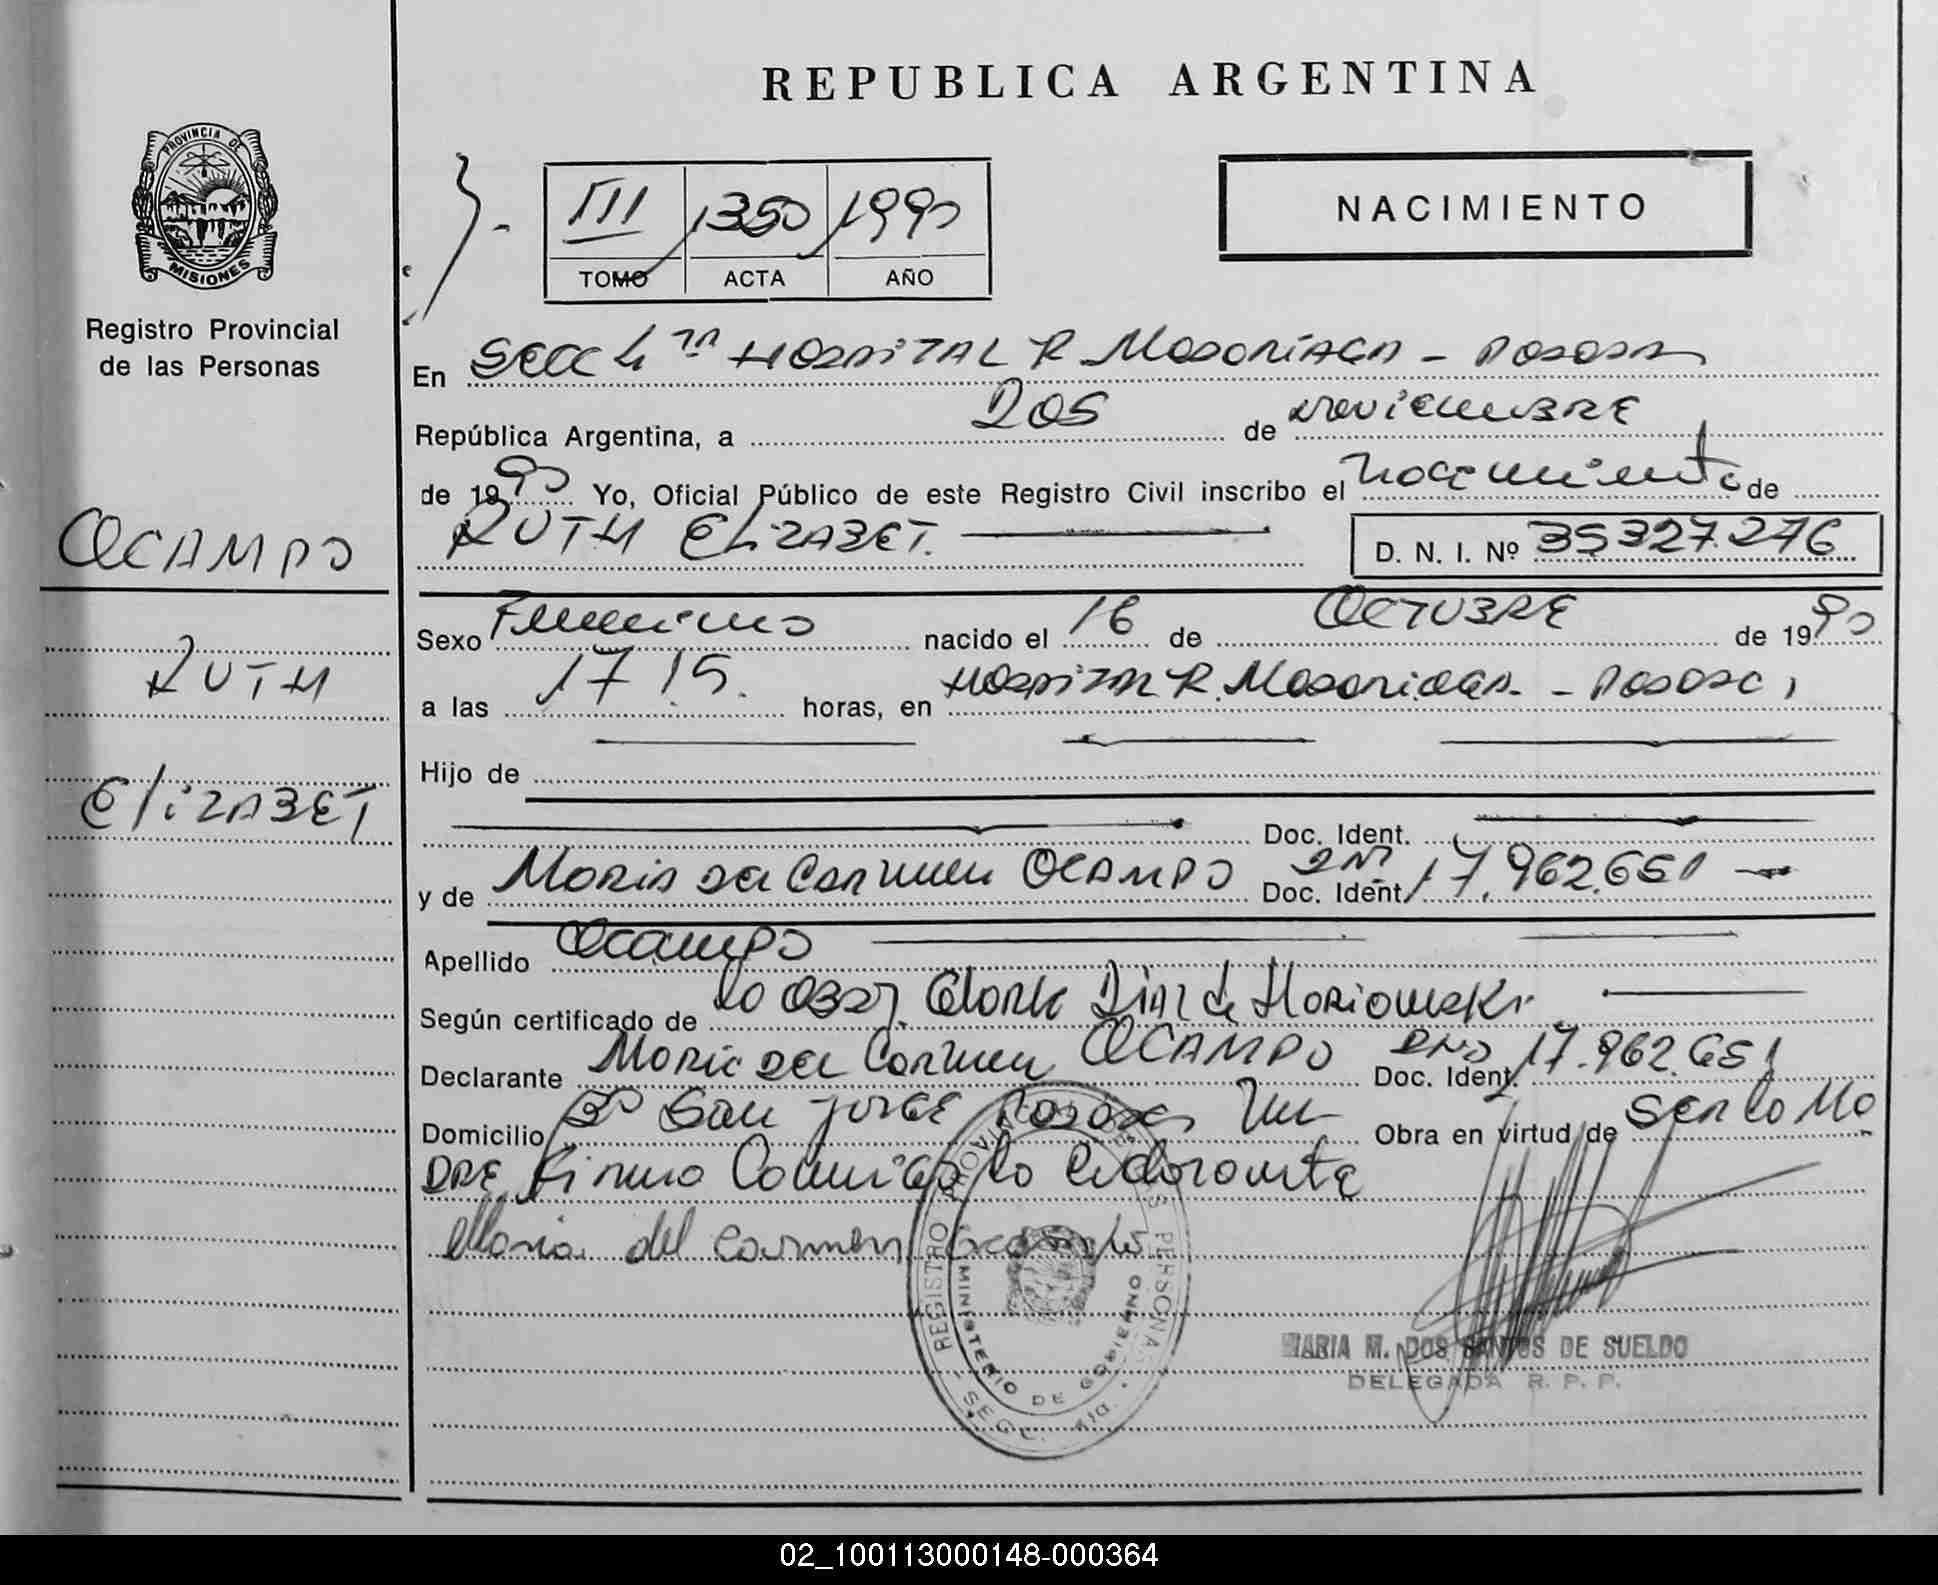 REPUBLICA ARGENTINA
PROVINCIA DE
MISIONES
Registro Provincial
de las Personas
III 1350 1990
TOMO ACTA AÑO
NACIMIENTO
En Secc 4ta HOSPITAL R. Madariaga - Posadas
República Argentina, a DOS de noviembre
de 1990 Yo, Oficial Público de este Registro Civil inscribo el nacimiento de
RUTH ELIZABET.
D. N. I. Nº 35327.276
OCAMPO
RUTH
ElizABET
Sexo Femenino nacido el 16 de OCTUBRE de 1990
a las 17 15. horas, en Hospital R. Madariaga - Posadas
Hijo de
Doc. Ident.
y de Maria del Carmen OCAMPO Doc. Ident. DNI 17.962.651
Apellido Ocampo
Según certificado de la Obst. Diaz de
Declarante Maria del Carmen OCAMPO Doc. Ident. DNI 17.962.651
Domicilio Bº San Jorge Posadas Mnes Obra en virtud de Ser la Ma
dre Firma Conmigo la declarante
Maria del carmen Ocampo
REGISTRO PROVINCIAL DE LAS PERSONAS
MINISTERIO DE GOBIERNO
SECC.
MARIA M. DOS SANTOS DE SUELDO
DELEGADA R. P. P.
02_100113000148-000364